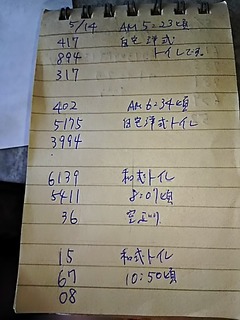 5/14 AM 5:23頃
417 自宅洋式
894 トイレです。
317
402 AM 6:34頃
5175 自宅洋式トイレ
3994
.
6139 和式トイレ
5411 8:07頃
36
15 和式トイレ
67 10:50頃
08